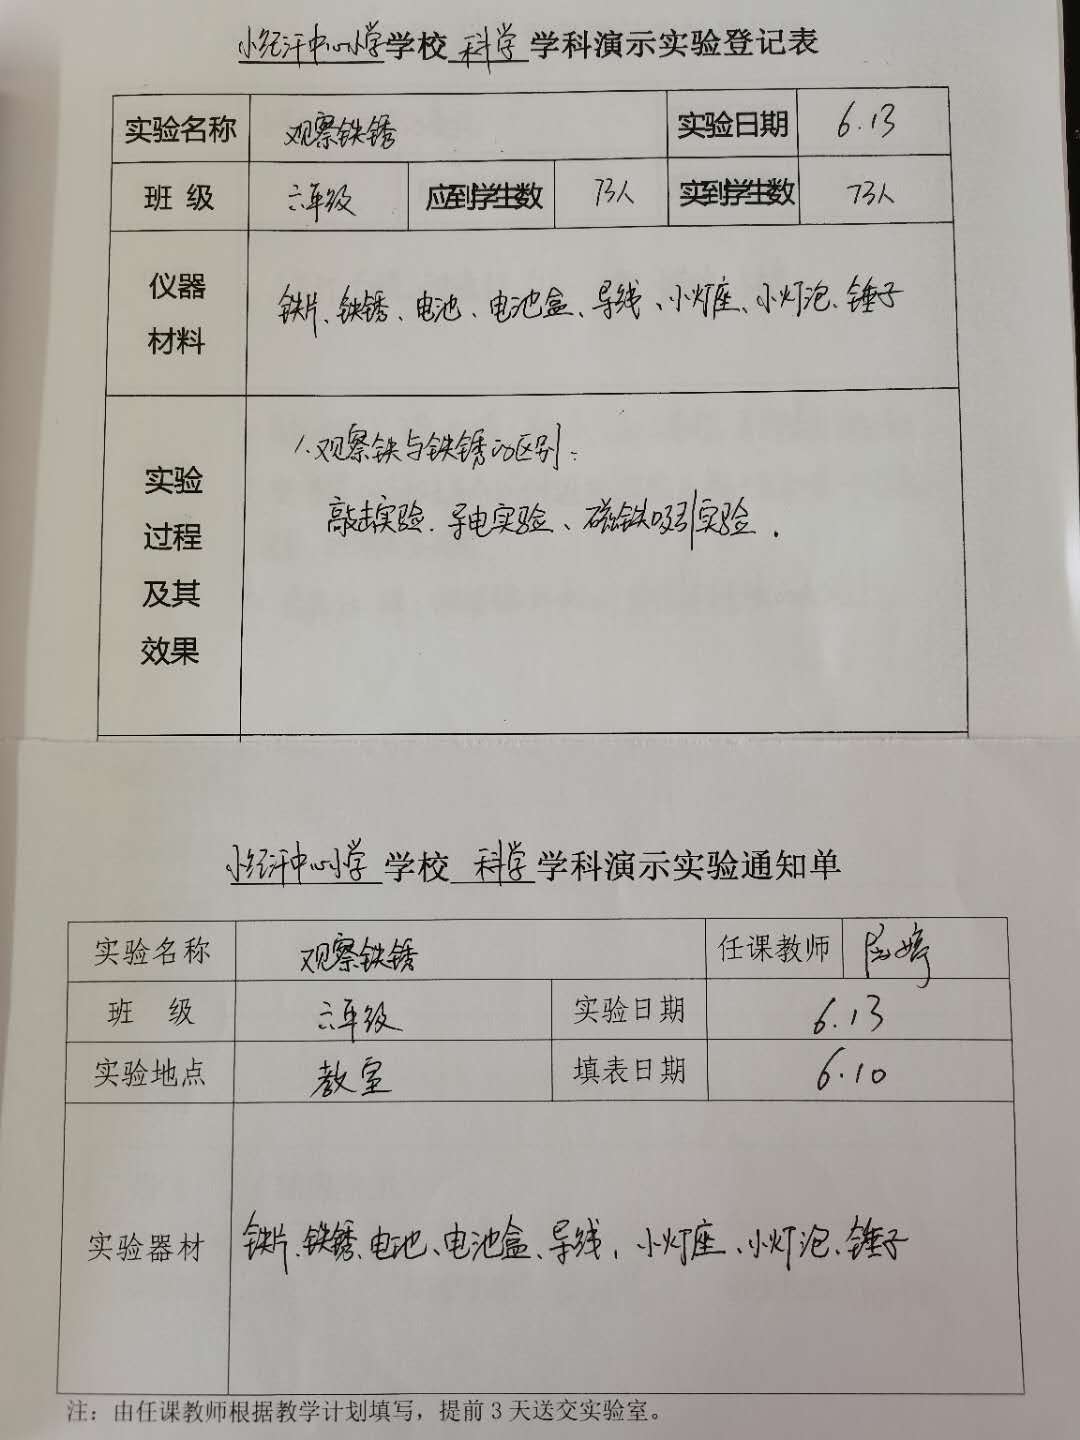 小纪汗中心小学学校 科学 学科演示实验登记表
实验名称 观察铁锈 实验日期 6.13
班 级 六年级 应到学生数 73人 实到学生数 73人
仪器
材料
铁片、铁锈、电池、电池盒、导线、小灯座、小灯泡、锤子
实验
过程
及其
效果
1.观察铁与铁锈的区别:
敲击实验、导电实验、磁铁吸引实验.
小纪汗中心小学 学校 科学 学科演示实验通知单
实验名称 观察铁锈 任课教师 婷
班 级 六年级 实验日期 6.13
实验地点 教室 填表日期 6.10
实验器材 铁片、铁锈、电池、电池盒、导线、小灯座、小灯泡、锤子
注：由任课教师根据教学计划填写，提前3天送交实验室。